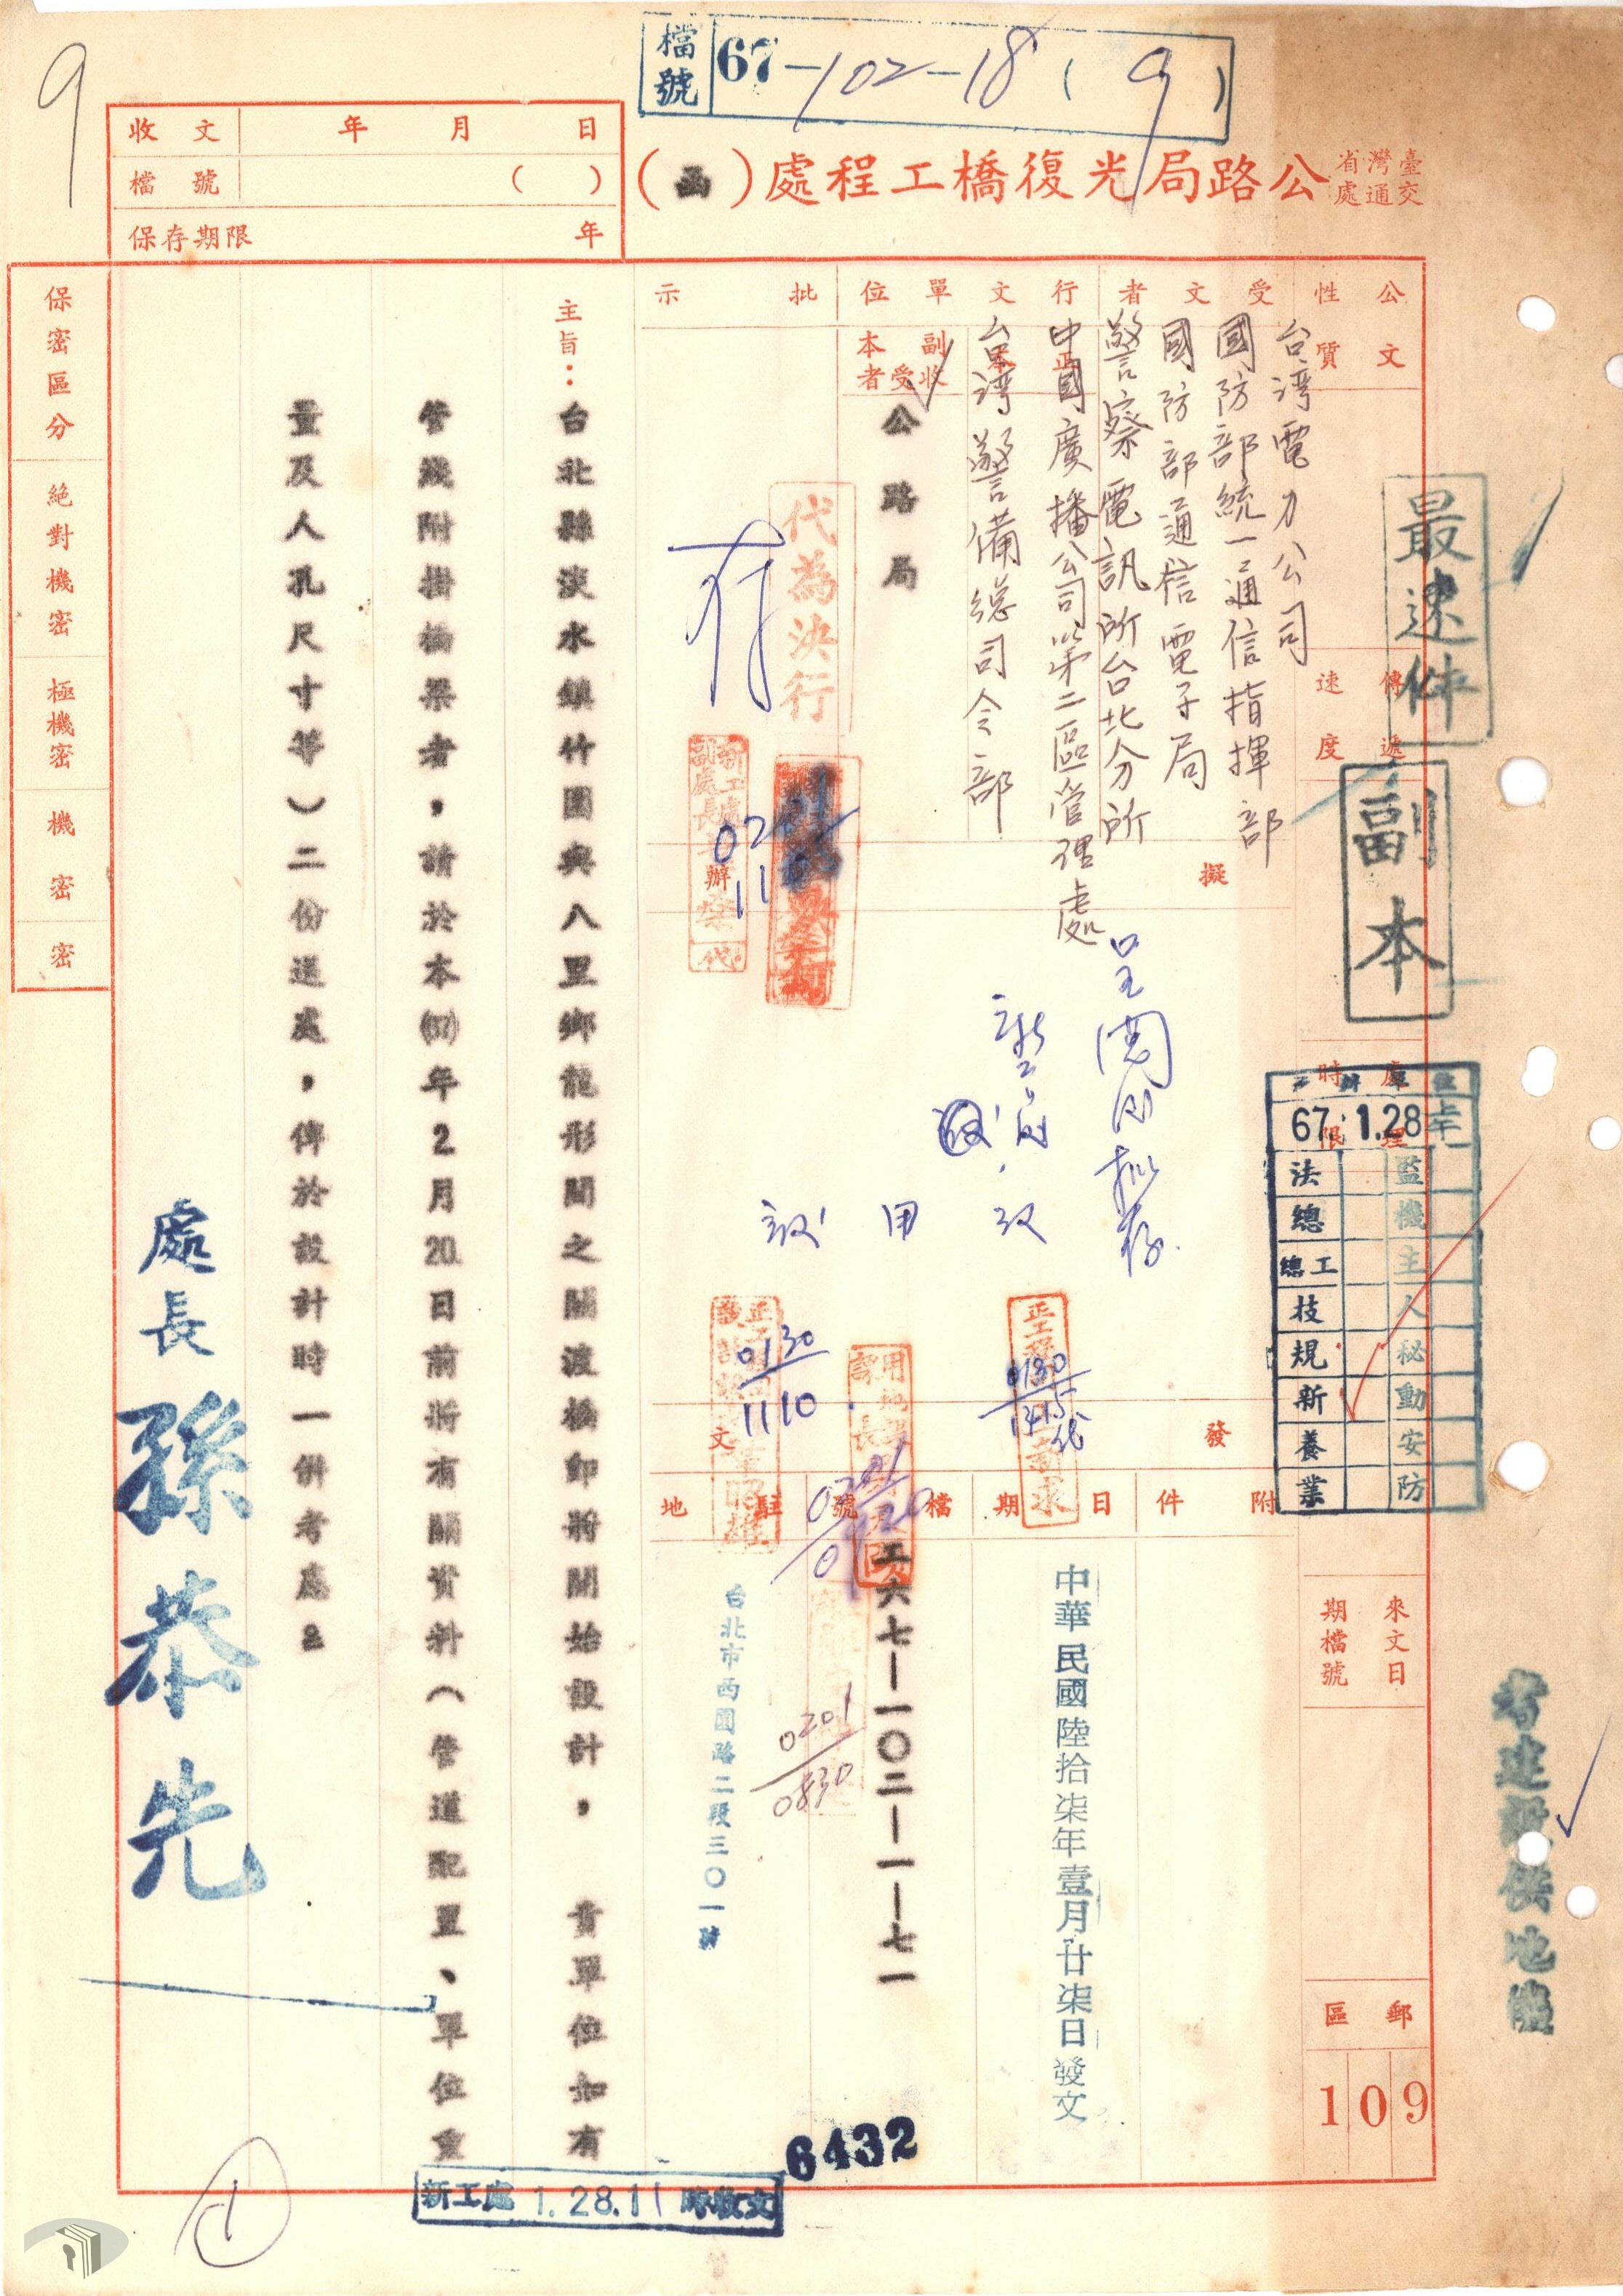 9
檔號 67-102-18(9)
臺灣省交通處 公路局光復橋工程處(函)
收文 年 月 日
檔號 ( )
保存期限 年
保密區分
絕對機密
極機密
機密
密
公文性質
最速件
傳遞速度
副本
處理時限
來文日期檔號
郵區
109
受文者
行文單位
正本
副本收受者
批示
台湾電力公司
國防部統一通信指揮部
國防部通信電子局
警察電訊所台北分所
中國廣播公司第二區管理處
台湾警備總司令部
公路局
代為決行
存
擬辦
呈閱后擬存
設
用
發文
附件
日期
中華民國陸拾柒年壹月廿柒日發文
檔號
工六七—一〇二—一—七一
駐地
台北市西園路二段三〇一號
0130
1110
0130
1415代
0201
0830
67.1.28 上午
監 機 主 人 秘 動 安 防
法 總 總工 技 規 新 養 業
主旨:台北縣淡水鎮竹圍與八里鄉龍形間之關渡橋即將開始設計, 貴單位如有
管綫附掛橋梁者,請於本(67)年2月20.日前將有關資料(管道配置、單位重
量及人孔尺寸等)二份送處,俾於設計時一併考慮。
處長 孫恭先
6432
新工處 1.28.11 時收文
1